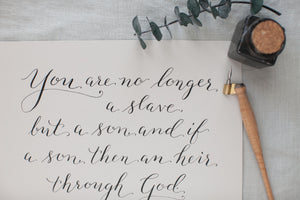 You are no longer
a slave,
but a son, and if
a son, then an heir
through God.